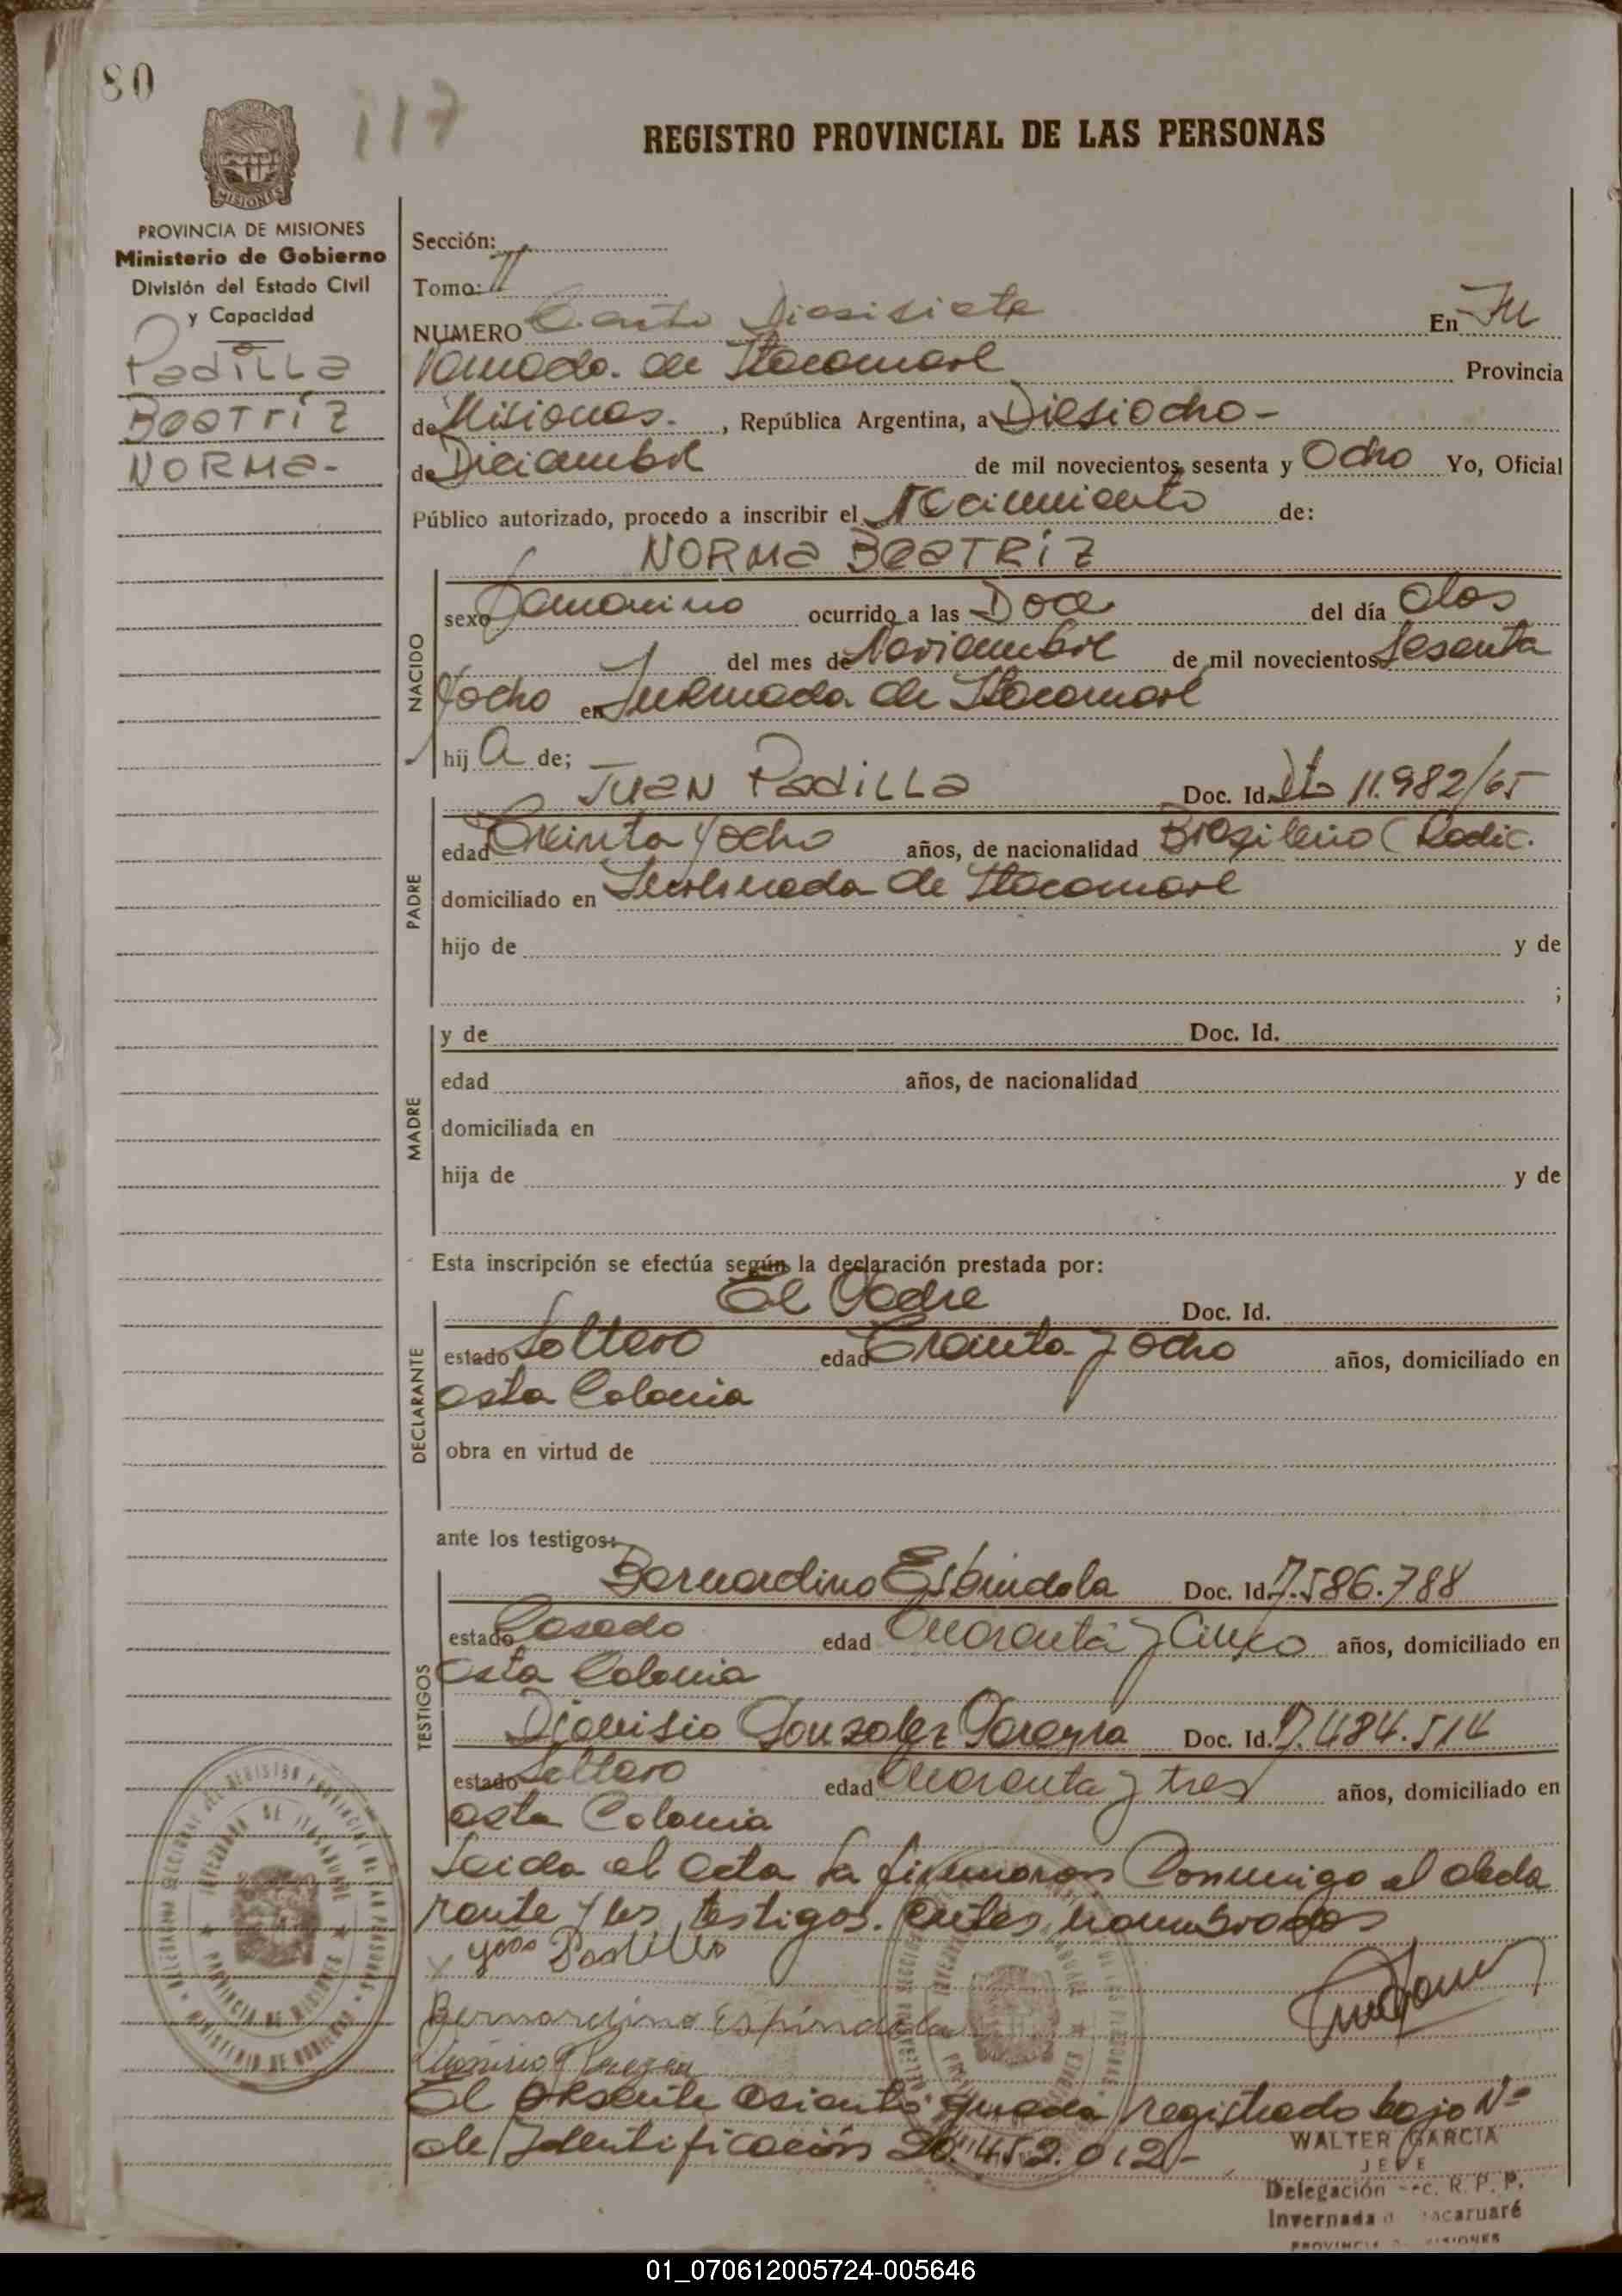 80
117
REGISTRO PROVINCIAL DE LAS PERSONAS
MISIONES
PROVINCIA DE MISIONES
Ministerio de Gobierno
División del Estado Civil
y Capacidad
Padilla
Beatriz
Norma-
Sección:
Tomo: II
NUMERO Ciento Diesisiete En In
vernada de Itacaruare Provincia
de Misiones. , República Argentina, a Diesiocho-
de Diciembre de mil novecientos sesenta y Ocho Yo, Oficial
Público autorizado, procedo a inscribir el Nacimiento de:
NORMA BEATRIZ
NACIDO
sexo Femenino ocurrido a las Doce del día dos
del mes de Noviembre de mil novecientos Sesenta
y ocho en Invernada de Itacaruare
hij a de;
PADRE
JUAN PADILLA Doc. Id. Dto 11.982/65
edad Treinta y ocho años, de nacionalidad Brasilero (Radic.
domiciliado en Invernada de Itacaruare
hijo de y de
;
MADRE
y de Doc. Id.
edad años, de nacionalidad
domiciliada en
hija de y de
Esta inscripción se efectúa según la declaración prestada por:
DECLARANTE
El Padre Doc. Id.
estado Soltero edad Treinta y Ocho años, domiciliado en
esta Colonia
obra en virtud de
ante los testigos:
TESTIGOS
Bernardino Espindola Doc. Id. 7.586.788
estado Casado edad Cuarenta y Cinco años, domiciliado en
esta Colonia
Dionisio Gonzalez Pereyra Doc. Id. 7.484.514
estado Soltero edad Cuarenta y tres años, domiciliado en
esta Colonia
Leida el acta la firmaron Conmigo el decla
rante y los testigos. antes nombrados
x Padilla
Bernardino Espindola
Dionisio
El presente asiento queda registrado bajo Nº
de Identificación 20.452.012-
WALTER GARCIA
JEFE
Delegación Sec. R. P. P.
Invernada Itacaruaré
PROVINCIA DE MISIONES
01_070612005724-005646